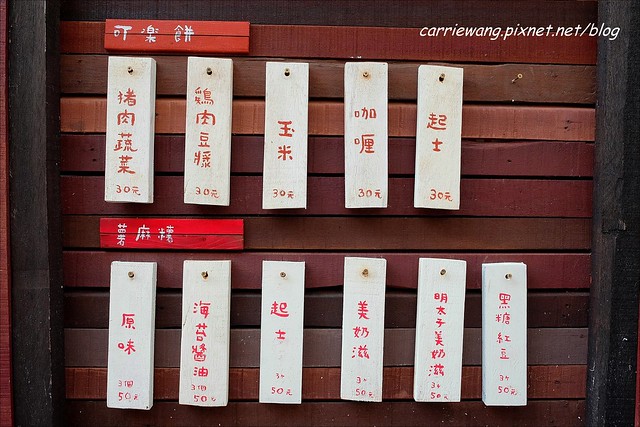 carriewang.pixnet.net/blog
可樂餅
猪肉蔬菜
30元
鷄肉豆漿
30元
玉米
30元
咖喱
30元
起士
30元
薯麻糬
原味
3個
50元
海苔醬油
3個
50元
起士
3个
50元
美奶滋
3个
50元
明太子美奶滋
3个
50元
黑糖紅豆
3个
50元